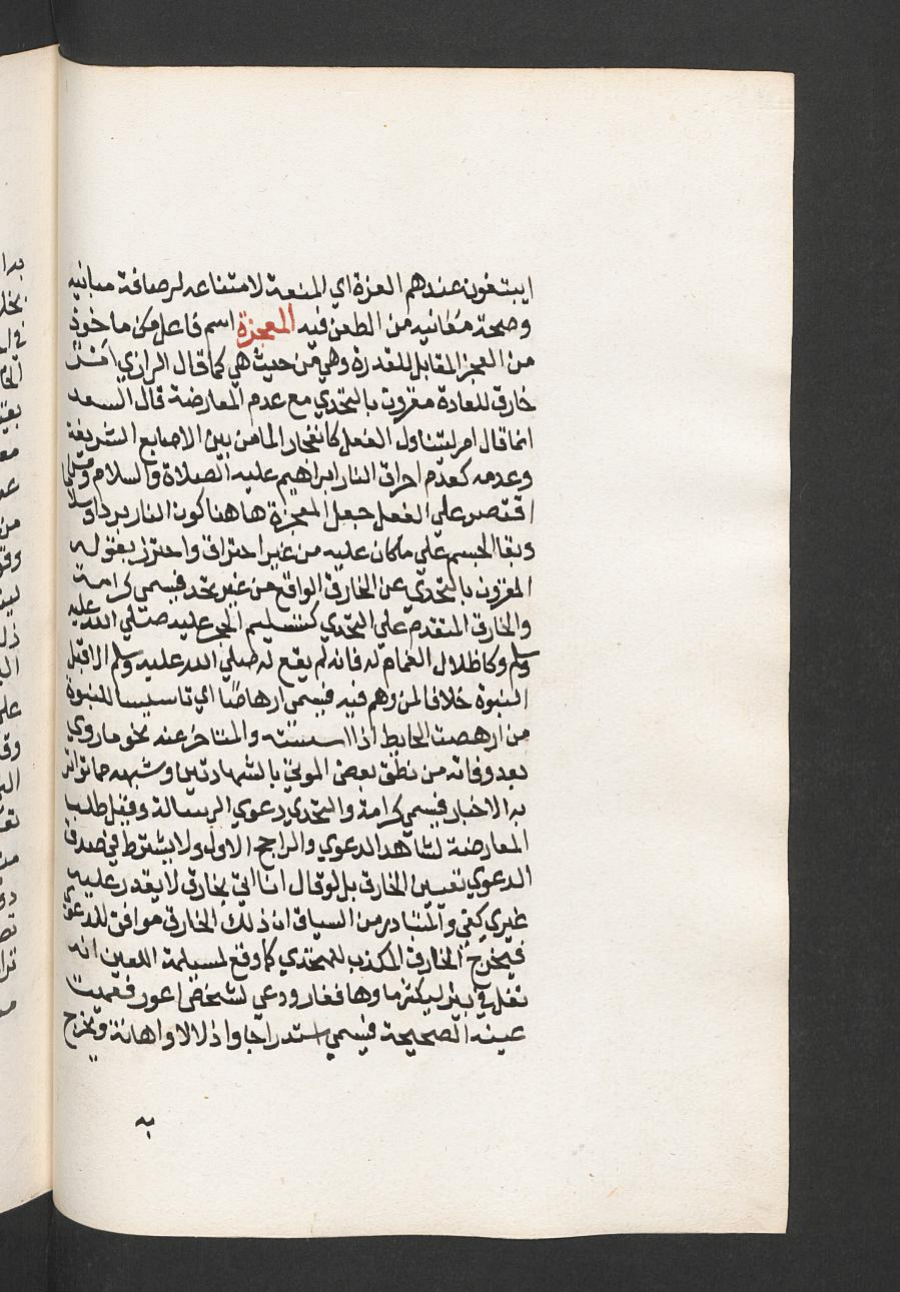 ايبتغون عندهم العزة اي المنعة لامتناعه لرصافة مبانيه
وصحة معانيه من الطعن فيه المعجزة اسم فاعل ماخوذ
من العجز المقابل للقدرة وهي من حيث هي كما قال الرازي امر
خارق للعادة مقرون بالتحدي مع عدم المعارضة قال السعد
انما قال امر ليتناول الفعل كانفجار الما من بين الاصابع الشريفة
وعدمه كعدم احراق النار ابراهيم عليه الصلاة والسلام ومن
اقتصر على الفعل جعل المعجزة هاهنا كون النار بردا وسلاما
وبقا الجسم على ماكان عليه من غير احتراق واحترز بقوله
المقرون بالتحدي عن الخارق الواقع من غير تحد فيسمى كرامة
والخارق المتقدم على التحدي كتسليم الحجر عليه صلى الله عليه
وسلم وكاظلال الغمام له فانه لم يقع له صلى الله عليه وسلم الا قبل
النبوة خلافا لمن وهم فيه فيسمى ارهاصا اي تاسيسا للنبوة
من ارهصت الحايط اذا اسسته والمتاخر عنه نحو ماروي
بعد وفاته من نطق بعض الموتى بالشهادتين وشبهه مما تواتر
به الاخبار فيسمى كرامة والتحدي دعوي الرسالة وقيل طلب
المعارضة لشاهد الدعوي والراجح الاول ولا يشترط في صدق
الدعوي تعيين الخارق بل لو قال انا اتي بخارق لا يقدر عليه
غيري كفى والمتبادر من السياق ان ذلك الخارق موافق للدعوي
فيخرج الخارق المكذب للمتحدي كما وقع لمسيلمة اللعين انه
تفل في بير ليكثر ماوها فغار ودعي لشخص اعور فعميت
عينه الصحيحة فيسمى استدراجا واذلالا واهانة ويخرج
به